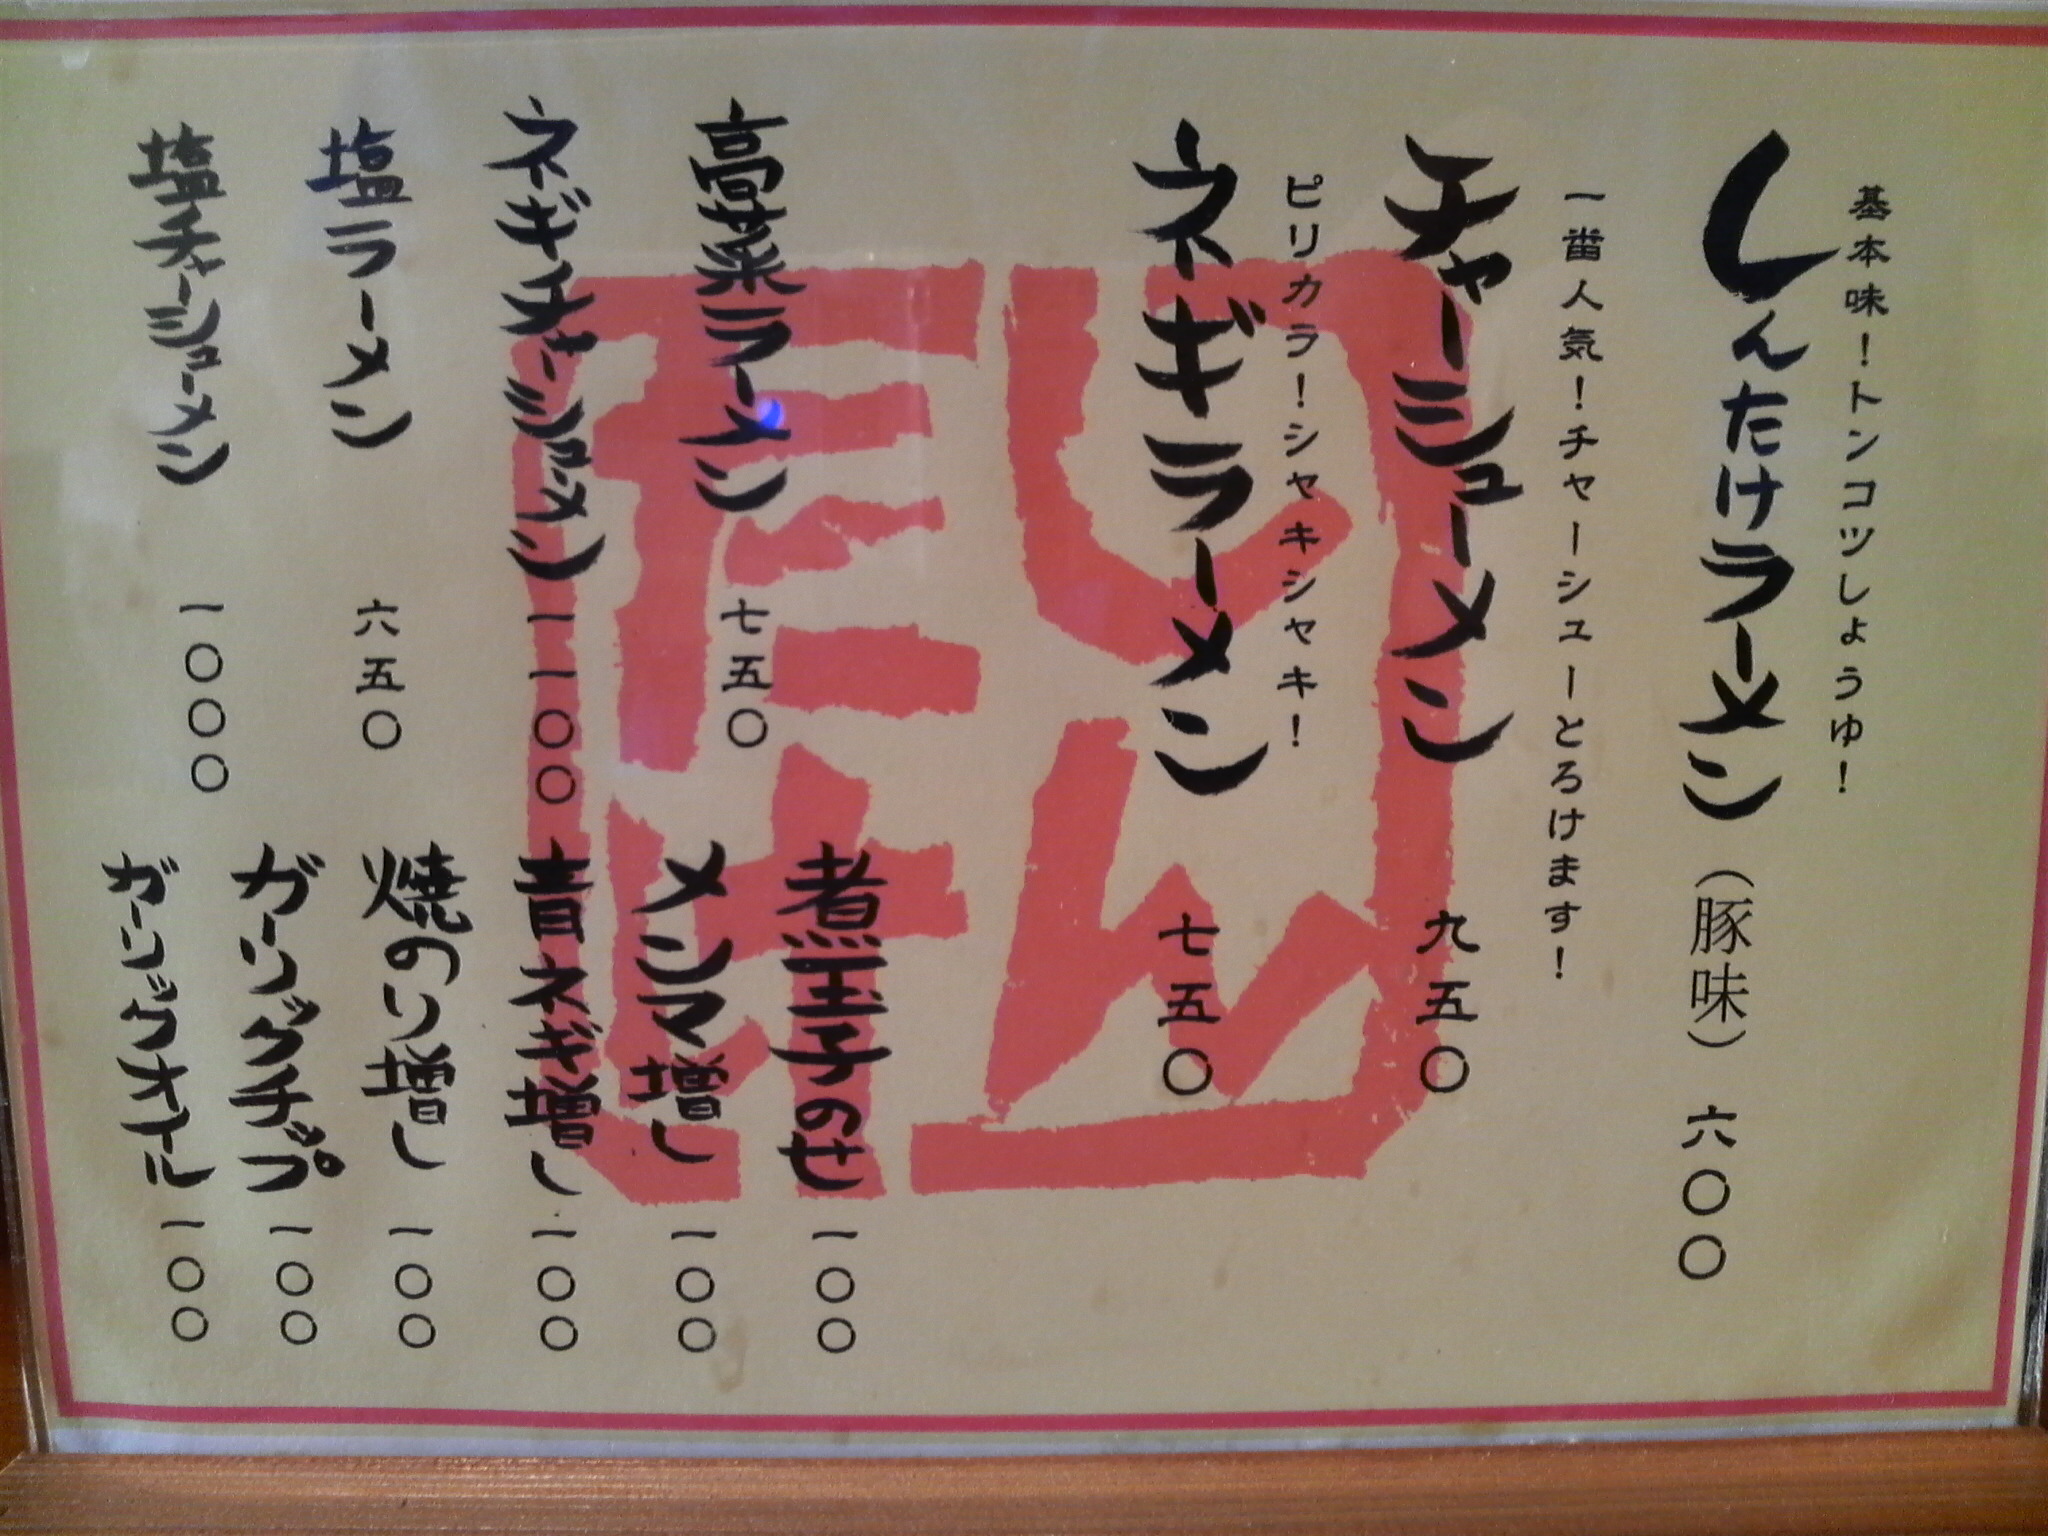 基本味！トンコツしょうゆ！
しんたけラーメン（豚味）六〇〇
一番人気！チャーシューとろけます！
チャーシューメン 九五〇
ピリカラ！シャキシャキ！
ネギラーメン 七五〇
高菜ラーメン 七五〇
ネギチャーシューメン 一一〇〇
塩ラーメン 六五〇
塩チャーシューメン 一〇〇〇
煮玉子のせ 一〇〇
メンマ増し 一〇〇
青ネギ増し 一〇〇
焼のり増し 一〇〇
ガーリックチップ 一〇〇
ガーリックオイル 一〇〇